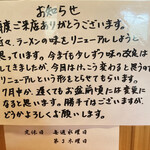 お知らせ
度ご来店ありがとうございます。
々、ラーメンの味をリニューアルしようと
思っています。今までも少しずつ味の改良は
してきましたが、今回はけっこう変わると思うので
リニューアルという形をとらせてもらいます。
7月中か、遅くてもお盆前頃には変更に
なると思います。勝手ではございますが、
どうかよろしくお願いします。
定休日 毎週水曜日
第3木曜日